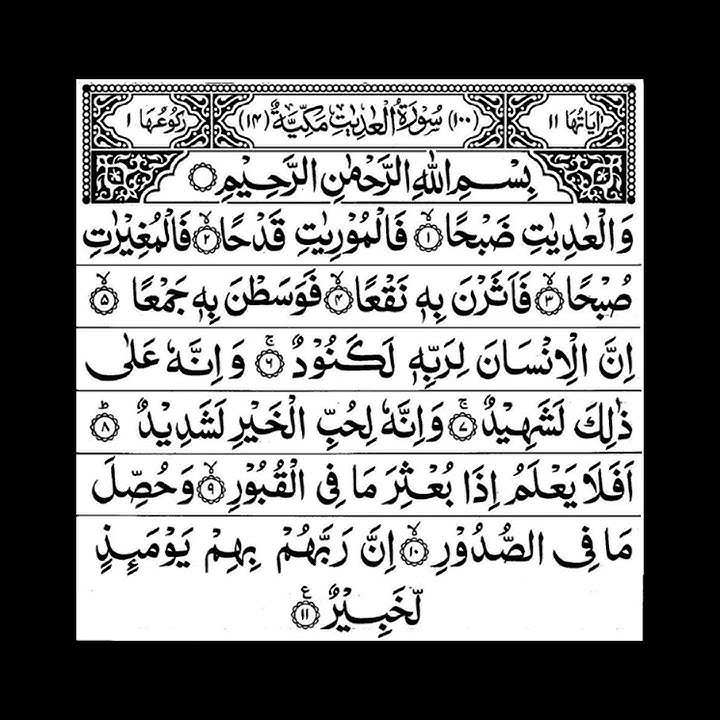 اٰیَاتُهَا ۱۱ (۱۰۰) سُوْرَةُ الْعٰدِیٰتِ مَكِّیَّةٌ (۱۴) رُكُوْعُهَا ۱
بِسْمِ اللّٰهِ الرَّحْمٰنِ الرَّحِیْمِ
وَالْعٰدِیٰتِ ضَبْحًا ۙ‏﴿۱﴾ فَالْمُوْرِیٰتِ قَدْحًا ۙ‏﴿۲﴾ فَالْمُغِیْرٰتِ
صُبْحًا ۙ‏﴿۳﴾ فَاَثَرْنَ بِهٖ نَقْعًا ۙ‏﴿۴﴾ فَوَسَطْنَ بِهٖ جَمْعًا ۙ‏﴿۵﴾
اِنَّ الْاِنْسَانَ لِرَبِّهٖ لَكَنُوْدٌ ۚ‏﴿۶﴾ وَاِنَّهٗ عَلٰی
ذٰلِكَ لَشَهِیْدٌ ۚ‏﴿۷﴾ وَاِنَّهٗ لِحُبِّ الْخَیْرِ لَشَدِیْدٌ ؕ‏﴿۸﴾
اَفَلَا یَعْلَمُ اِذَا بُعْثِرَ مَا فِی الْقُبُوْرِ ۙ‏﴿۹﴾ وَحُصِّلَ
مَا فِی الصُّدُوْرِ ۙ‏﴿۱۰﴾ اِنَّ رَبَّهُمْ بِهِمْ یَوْمَىِٕذٍ
لَّخَبِیْرٌ ‏﴿۱۱﴾ ع